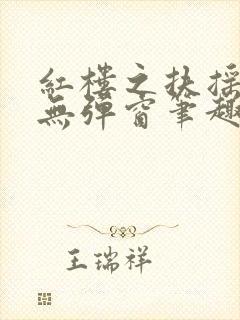 紅樓之扶搖
無彈窗筆趣
王瑞祥